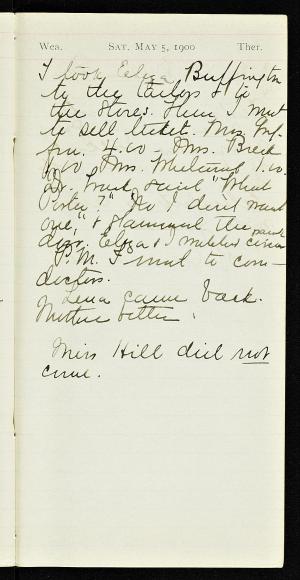 Wea. SAT. MAY 5, 1900 Ther.
I took Eliza Buffington
to the tailors & to
the stores. Then I went
to sell ticket. Mrs.
4.00 - Mrs. Breck
1.00 Mrs. 1.00.
Dr. said "What
"No I don't want
one," & slammed the
door. Eliza & I
P.M. I went to com-
doctors.
Lena came back.
Mother better.
Miss Hill did not
come.